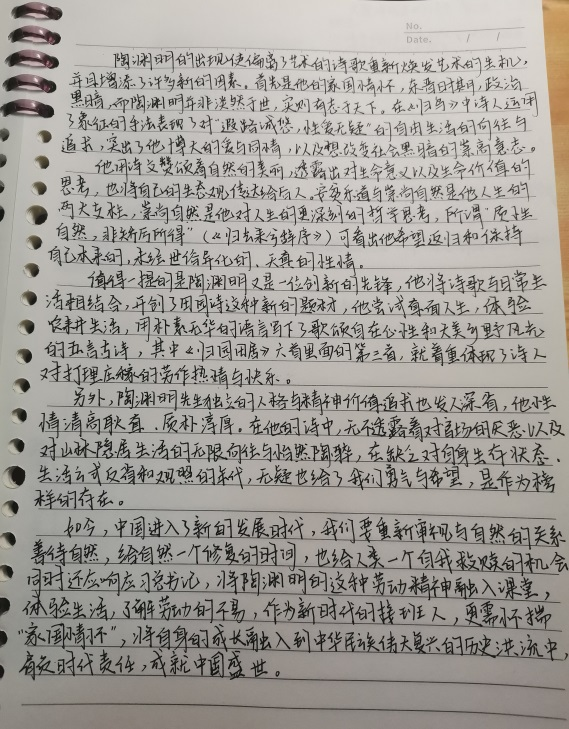 No.
Date. / /
陶渊明的出现使偏离了艺术的诗歌重新焕发艺术的生机,
并且增添了许多新的因素。首先是他的家国情怀,东晋时期,政治
黑暗,而陶渊明并非淡然于世,实则有志于天下。在《归鸟》中诗人运用
了象征的手法表现了对“遐路诚悠,性爱无疑”的自由生活的向往与
追求,突出了他博大的爱与同情,以及想改变社会黑暗的崇高意志。
他用诗文赞颂着自然的美丽,透露出对生命意义以及生命价值的
思考,也将自己的生态观传达给后人,安贫乐道与崇尚自然是他人生的
两大支柱,崇尚自然是他对人生的更深刻的哲学思考,所谓“质性
自然,非矫厉所得”(《归去来兮辞序》)可看出他希望返归和保持
自己本来的,未经世俗异化的、天真的性情。
值得一提的是陶渊明又是一位创新的先锋,他将诗歌与日常生
活相结合,开创了田园诗这种新的题材,他尝试直面人生,体验
农耕生活,用朴素无华的语言写下了歌颂自在心性和大美可野风光
的五言古诗,其中《归园田居》六首里面的第三首,就着重体现了诗人
对打理庄稼的劳作热情与快乐。
另外,陶渊明先生独立的人格与精神价值追求也发人深省,他性
情清高耿直、质朴淳厚。在他的诗中,无不透露着对官场的厌恶以及
对山林隐居生活的无限向往与怡然陶醉,在缺乏对自身生存状态、
生活方式反省和观照的年代,无疑也给了我们勇气与希望,是作为榜
样的存在。
如今,中国进入了新的发展时代,我们要重新审视与自然的关系
善待自然,给自然一个修复的时间,也给人类一个自我救赎的机会
同时还应响应习总书记,将陶渊明的这种劳动精神融入课堂,
体验生活,了解劳动的不易,作为新时代的接班人,更需怀揣
“家国情怀”,将自身的成长融入到中华民族伟大复兴的历史洪流中,
肩负时代责任,成就中国盛世。